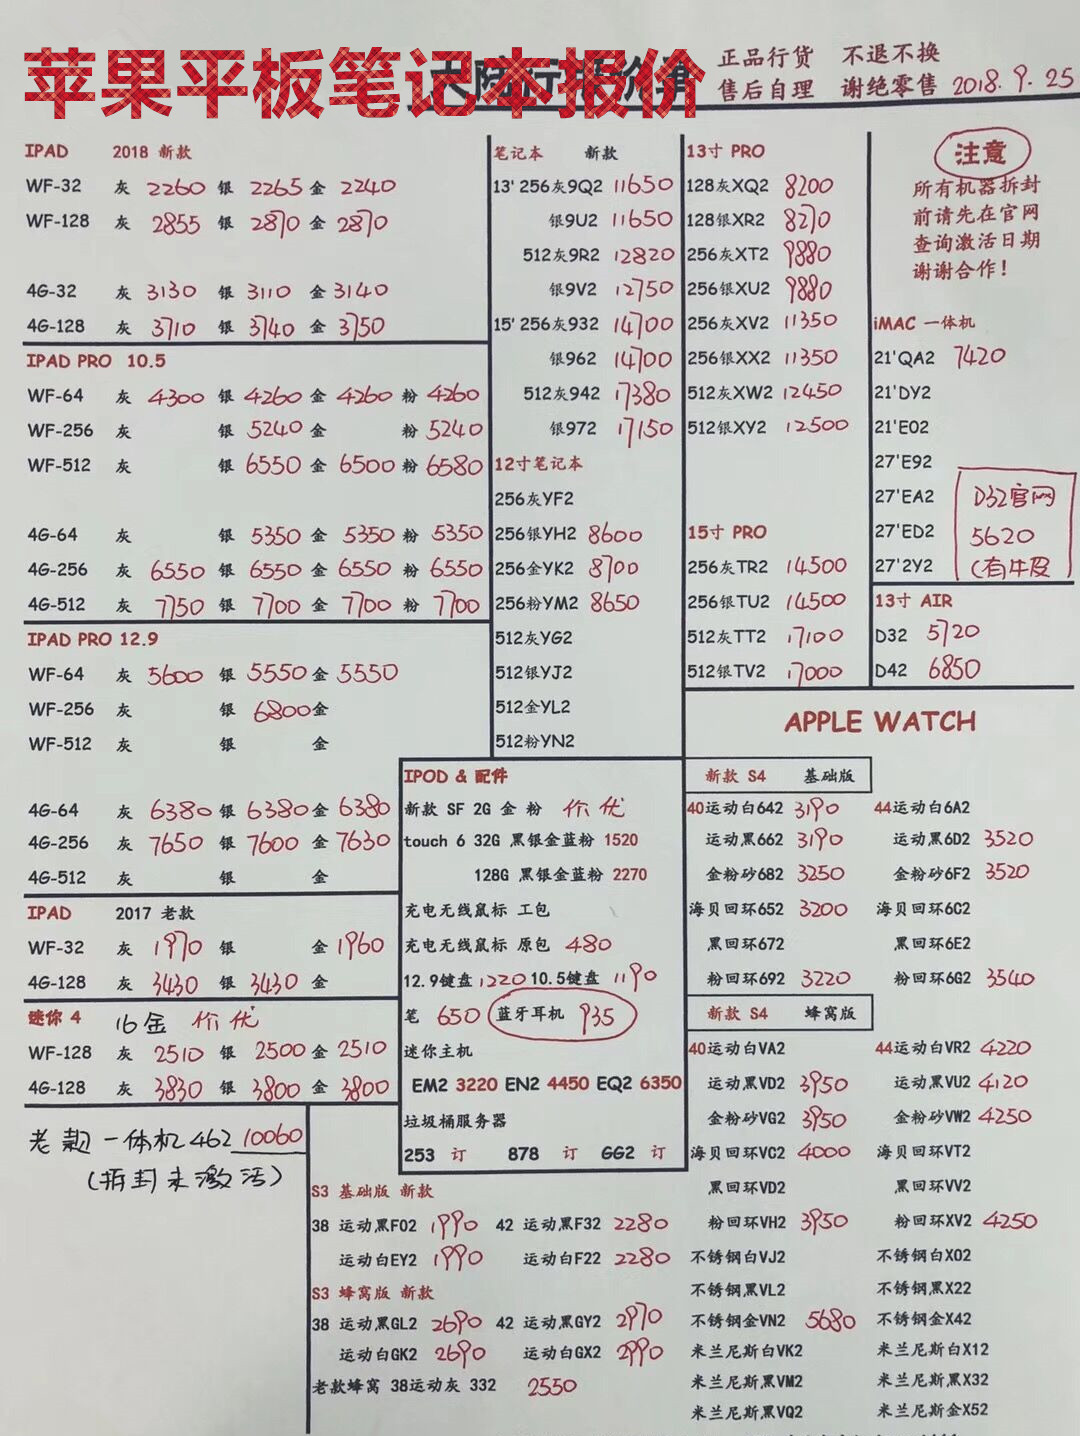 苹果平板笔记本报价
正品行货 不退不换
售后自理 谢绝零售 2018.9.25
IPAD 2018 新款
WF-32 灰 2260 银 2265 金 2240
WF-128 灰 2855 银 2870 金 2870
4G-32 灰 3130 银 3110 金 3140
4G-128 灰 3710 银 3740 金 3750
IPAD PRO 10.5
WF-64 灰 4300 银 4260 金 4260 粉 4260
WF-256 灰 银 5240 金 粉 5240
WF-512 灰 银 6550 金 6500 粉 6580
4G-64 灰 银 5350 金 5350 粉 5350
4G-256 灰 6550 银 6550 金 6550 粉 6550
4G-512 灰 7750 银 7700 金 7700 粉 7700
IPAD PRO 12.9
WF-64 灰 5600 银 5550 金 5550
WF-256 灰 银 6800 金
WF-512 灰 银 金
4G-64 灰 6380 银 6380 金 6380
4G-256 灰 7650 银 7600 金 7630
4G-512 灰 银 金
IPAD 2017 老款
WF-32 灰 1970 银 金 1960
4G-128 灰 3430 银 3430 金
迷你 4 16金 价优
WF-128 灰 2510 银 2500 金 2510
4G-128 灰 3830 银 3800 金 3800
老款一体机462 10060
(拆封未激活)
笔记本 新款
13' 256灰9Q2 11650
银9U2 11650
512灰9R2 12820
银9V2 12750
15' 256灰932 14700
银962 14700
512灰942 17380
银972 17150
12寸笔记本
256灰YF2
256银YH2 8600
256金YK2 8700
256粉YM2 8650
512灰YG2
512银YJ2
512金YL2
512粉YN2
13寸 PRO
128灰XQ2 8200
128银XR2 8270
256灰XT2 9880
256银XU2 9880
256灰XV2 11350
256银XX2 11350
512灰XW2 12450
512银XY2 12500
15寸 PRO
256灰TR2 14500
256银TU2 14500
512灰TT2 17100
512银TV2 17000
注意
所有机器拆封
前请先在官网
查询激活日期
谢谢合作!
iMAC 一体机
21'QA2 7420
21'DY2
21'E02
27'E92
27'EA2
27'ED2
27'2Y2
D32官网
5620
(有牛皮
13寸 AIR
D32 5720
D42 6850
IPOD & 配件
新款 SF 2G 金 粉 价优
touch 6 32G 黑银金蓝粉 1520
128G 黑银金蓝粉 2270
充电无线鼠标 工包
充电无线鼠标 原包 480
12.9键盘 1220 10.5键盘 1190
笔 650 蓝牙耳机 935
迷你主机
EM2 3220 EN2 4450 EQ2 6350
垃圾桶服务器
253 订 878 订 GG2 订
S3 基础版 新款
38 运动黑F02 1990 42 运动黑F32 2280
运动白EY2 1990 运动白F22 2280
S3 蜂窝版 新款
38 运动黑GL2 2690 42 运动黑GY2 2970
运动白GK2 2690 运动白GX2 2990
老款蜂窝 38运动灰 332 2550
APPLE WATCH
新款 S4 基础版
40运动白642 3190 44运动白6A2
运动黑662 3190 运动黑6D2 3520
金粉砂682 3250 金粉砂6F2 3520
海贝回环652 3200 海贝回环6C2
黑回环672 黑回环6E2
粉回环692 3220 粉回环6G2 3540
新款 S4 蜂窝版
40运动白VA2 44运动白VR2 4220
运动黑VD2 3950 运动黑VU2 4120
金粉砂VG2 3950 金粉砂VW2 4250
海贝回环VC2 4000 海贝回环VT2
黑回环VD2 黑回环VV2
粉回环VH2 3950 粉回环XV2 4250
不锈钢白VJ2 不锈钢白X02
不锈钢黑VL2 不锈钢黑X22
不锈钢金VN2 5680 不锈钢金X42
米兰尼斯白VK2 米兰尼斯白X12
米兰尼斯黑VM2 米兰尼斯黑X32
米兰尼斯黑VQ2 米兰尼斯金X52